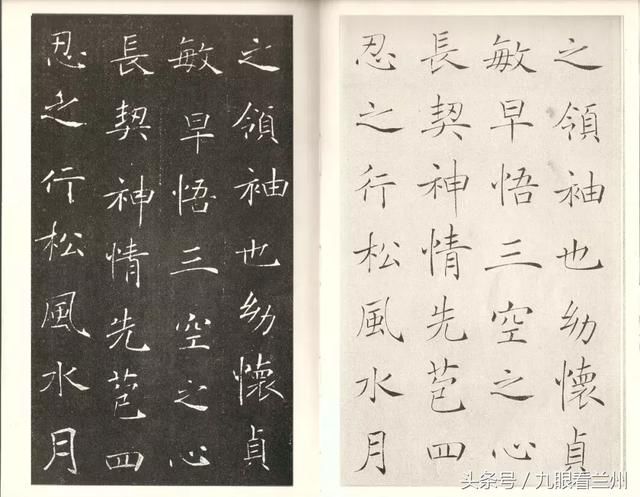 之領袖也幼懷貞
敏早悟三空之心
長契神情先苞四
忍之行松風水月
之領袖也幼懷貞
敏早悟三空之心
長契神情先苞四
忍之行松風水月
头条号 / 九眼看兰州